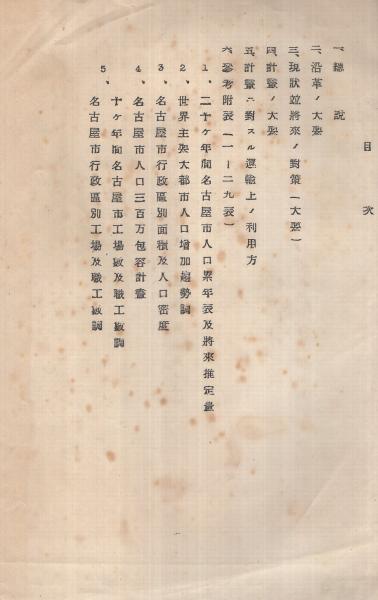 目次
一、總説
二、沿革ノ大要
三、現狀並將來ノ對策(大要)
四、計畫ノ大要
五、計畫ニ對スル運輸上ノ利用方
六、參考附表(一ー二九表)
1、二十ヶ年間名古屋市人口累年表及將來推定量
2、世界主要大都市人口增加趨勢調
3、名古屋市行政區別面積及人口密度
4、名古屋市人口三百万包容計畫
十ヶ年間名古屋市工場數及職工數調
5、名古屋市行政區別工場數及職工數調